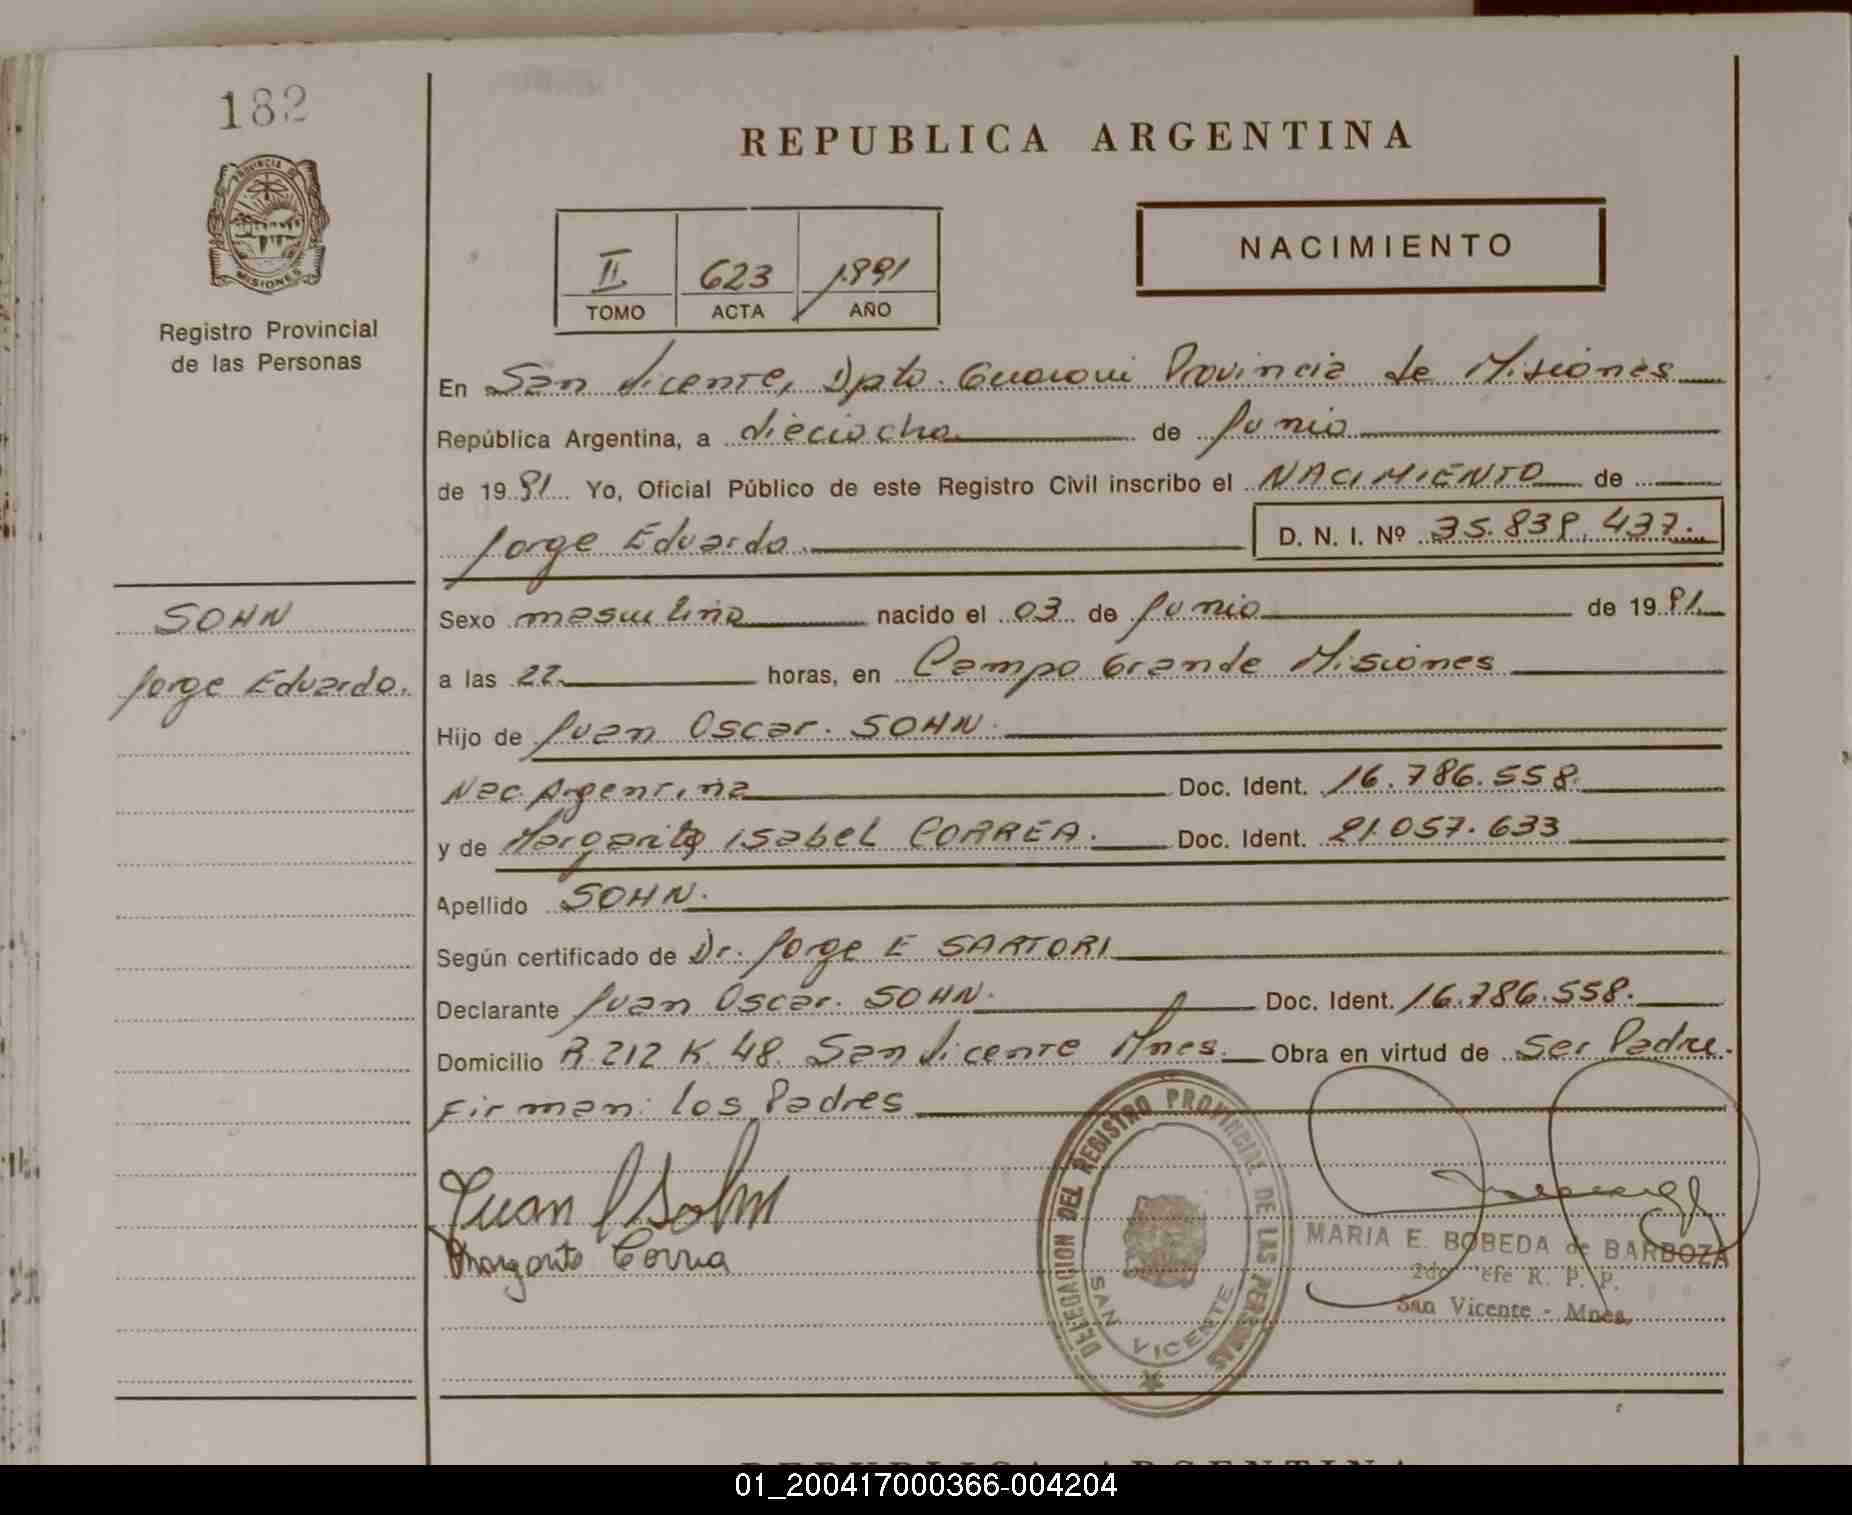 182
REPUBLICA ARGENTINA
PROVINCIA DE
MISIONES
Registro Provincial
de las Personas
NACIMIENTO
II 623 1991
TOMO ACTA AÑO
En San Vicente, Dpto. Guarani Provincia de Misiones
República Argentina, a dieciocho de Junio
de 1991 Yo, Oficial Público de este Registro Civil inscribo el NACIMIENTO de
Jorge Eduardo. D. N. I. Nº 35.839.437.
SOHN
Jorge Eduardo.
Sexo masculino nacido el 03 de Junio de 1991
a las 22 horas, en Campo Grande Misiones
Hijo de Juan Oscar. SOHN.
Nac. Argentina Doc. Ident. 16.786.558.
y de Margarita Isabel CORREA. Doc. Ident. 21.057.633
Apellido SOHN.
Según certificado de Dr. Jorge E SARTORI
Declarante Juan Oscar. SOHN. Doc. Ident. 16.786.558.
Domicilio R.212 K 48. San Vicente Mnes. Obra en virtud de Ser Padre.
Firman: los Padres
Juan O Sohn
Margarita Correa
DELEGACION DEL REGISTRO PROVINCIAL DE LAS PERSONAS
SAN VICENTE
MARIA E. BOBEDA de BARBOZA
2do Jefe R. P. P.
San Vicente - Mnes.
REPUBLICA ARGENTINA
01_200417000366-004204